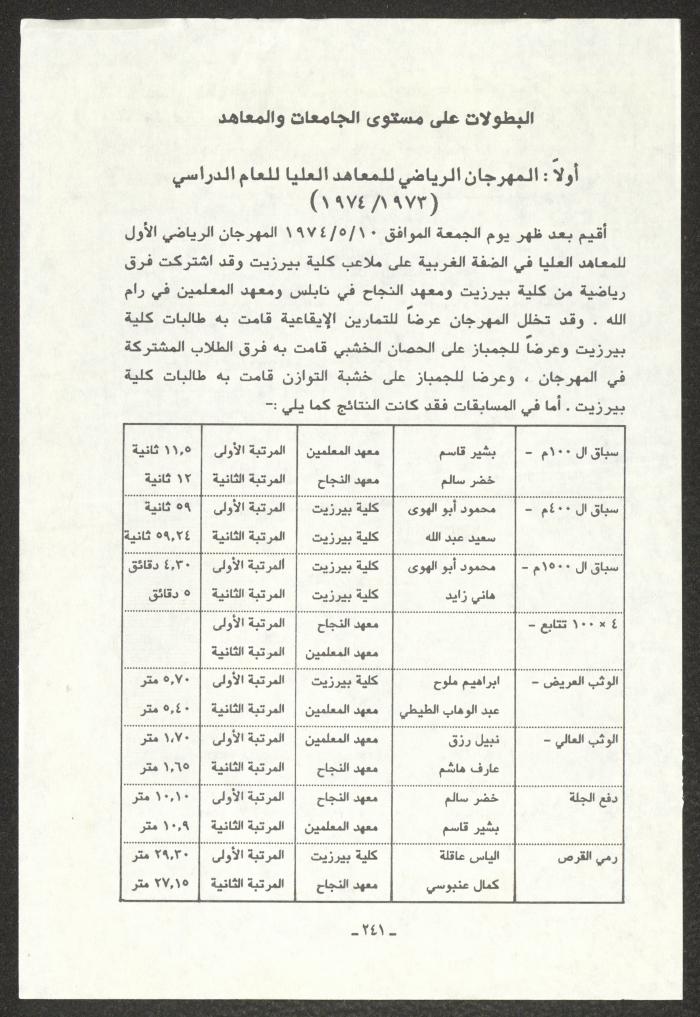 البطولات على مستوى الجامعات والمعاهد
أولاً : المهرجان الرياضي للمعاهد العليا للعام الدراسي
(١٩٧٣/ ١٩٧٤)
أقيم بعد ظهر يوم الجمعة الموافق ١٩٧٤/٥/١٠ المهرجان الرياضي الأول
للمعاهد العليا في الضفة الغربية على ملاعب كلية بيرزيت وقد اشتركت فرق
رياضية من كلية بيرزيت ومعهد النجاح في نابلس ومعهد المعلمين في رام
الله . وقد تخلل المهرجان عرضاً للتمارين الإيقاعية قامت به طالبات كلية
بيرزيت وعرضاً للجمباز على الحصان الخشبي قامت به فرق الطلاب المشتركة
في المهرجان ، وعرضا للجمباز على خشبة التوازن قامت به طالبات كلية
بيرزيت . أما في المسابقات فقد كانت النتائج كما يلي :-
سباق ال ١٠٠م - بشير قاسم معهد المعلمين المرتبة الأولى ١١,٥ ثانية
خضر سالم معهد النجاح المرتبة الثانية ١٢ ثانية
سباق ال ٤٠٠م - محمود أبو الهوى كلية بيرزيت المرتبة الأولى ٥٩ ثانية
سعيد عبد الله كلية بيرزيت المرتبة الثانية ٥٩,٢٤ ثانية
سباق ال ١٥٠٠م - محمود أبو الهوى كلية بيرزيت المرتبة الأولى ٤,٣٠ دقائق
هاني زايد كلية بيرزيت المرتبة الثانية ٥ دقائق
٤ × ١٠٠ تتابع - معهد النجاح المرتبة الأولى
معهد المعلمين المرتبة الثانية
الوثب العريض - ابراهيم ملوح كلية بيرزيت المرتبة الأولى ٥,٧٠ متر
عبد الوهاب الطيطي معهد المعلمين المرتبة الثانية ٥,٤٠ متر
الوثب العالي - نبيل رزق معهد المعلمين المرتبة الأولى ١,٧٠ متر
عارف هاشم معهد النجاح المرتبة الثانية ١,٦٥ متر
دفع الجلة خضر سالم معهد النجاح المرتبة الأولى ١٠,١٠ متر
بشير قاسم معهد المعلمين المرتبة الثانية ١٠,٩ متر
رمي القرص الياس عاقلة كلية بيرزيت المرتبة الأولى ٢٩,٣٠ متر
كمال عنبوسي معهد النجاح المرتبة الثانية ٢٧,١٥ متر
- ٢٤١ -